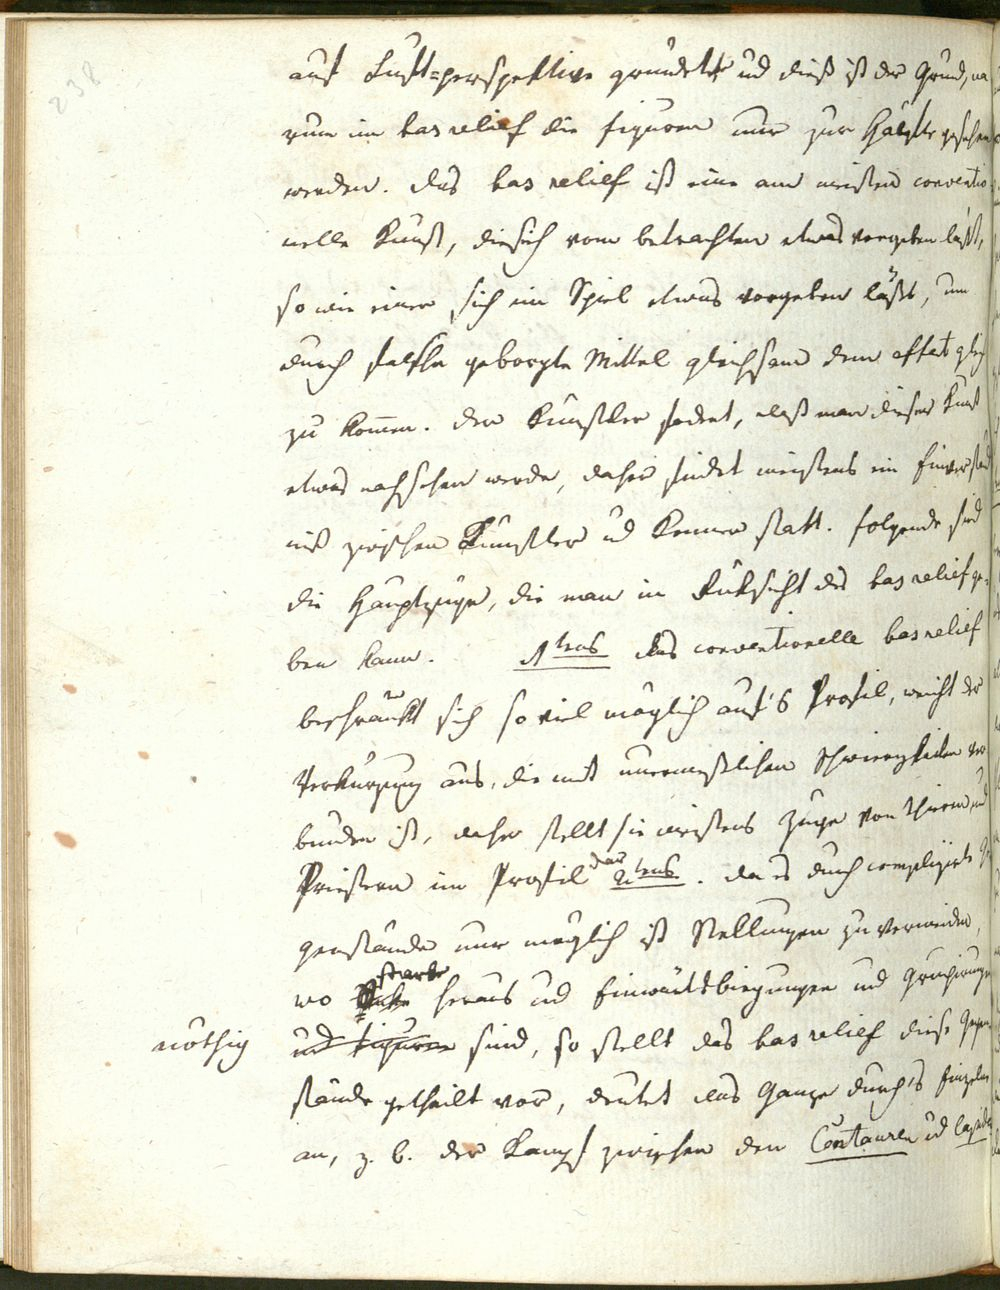 238
auf Luft=perspektive gründet ud dieß ist der Grund, wa
rum im bas relief die figuren nur zur Hälfte gesehen
werden. das bas relief ist eine am meisten conventio
nelle Kunst, die sich vom betrachter etwas vorgeben läßt,
so wie einer sich im Spiel etwas vorgeben läßt, um
durch falsche geborgte Mittel gleichsam dem effect gleich
zu kommen. der Künstler fodert, daß man dieser Kunst
etwas nachsehen werde, daher findet meistens ein Einverständ
niß zwischen Künstler ud Kenner statt. folgende sind
die Hauptzüge, die man in Rüksicht des bas relief ge=
ben kann. 1tens das conventionelle bas relief
beschränkt sich so viel möglich auf's Profil, weicht der
Verkürzung aus, die mit unermeßlichen Schwierigkeiten ver
bunden ist, daher stellt sie meistens Züge von Thieren und
Priestern im Profil dar 2tens. da es durch complizirte Ge
genstände nur möglich ist Stellungen zu vermeiden,
wo starke heraus ud Einwärtsbiegungen und Grupirungen
nöthig und figuren sind, so stellt das bas relief diese Gegen
stände getheilt vor, deutet das Ganze durch's Einzelne
an, z. b. der Kampf zwischen den Centauren ud Lapiden